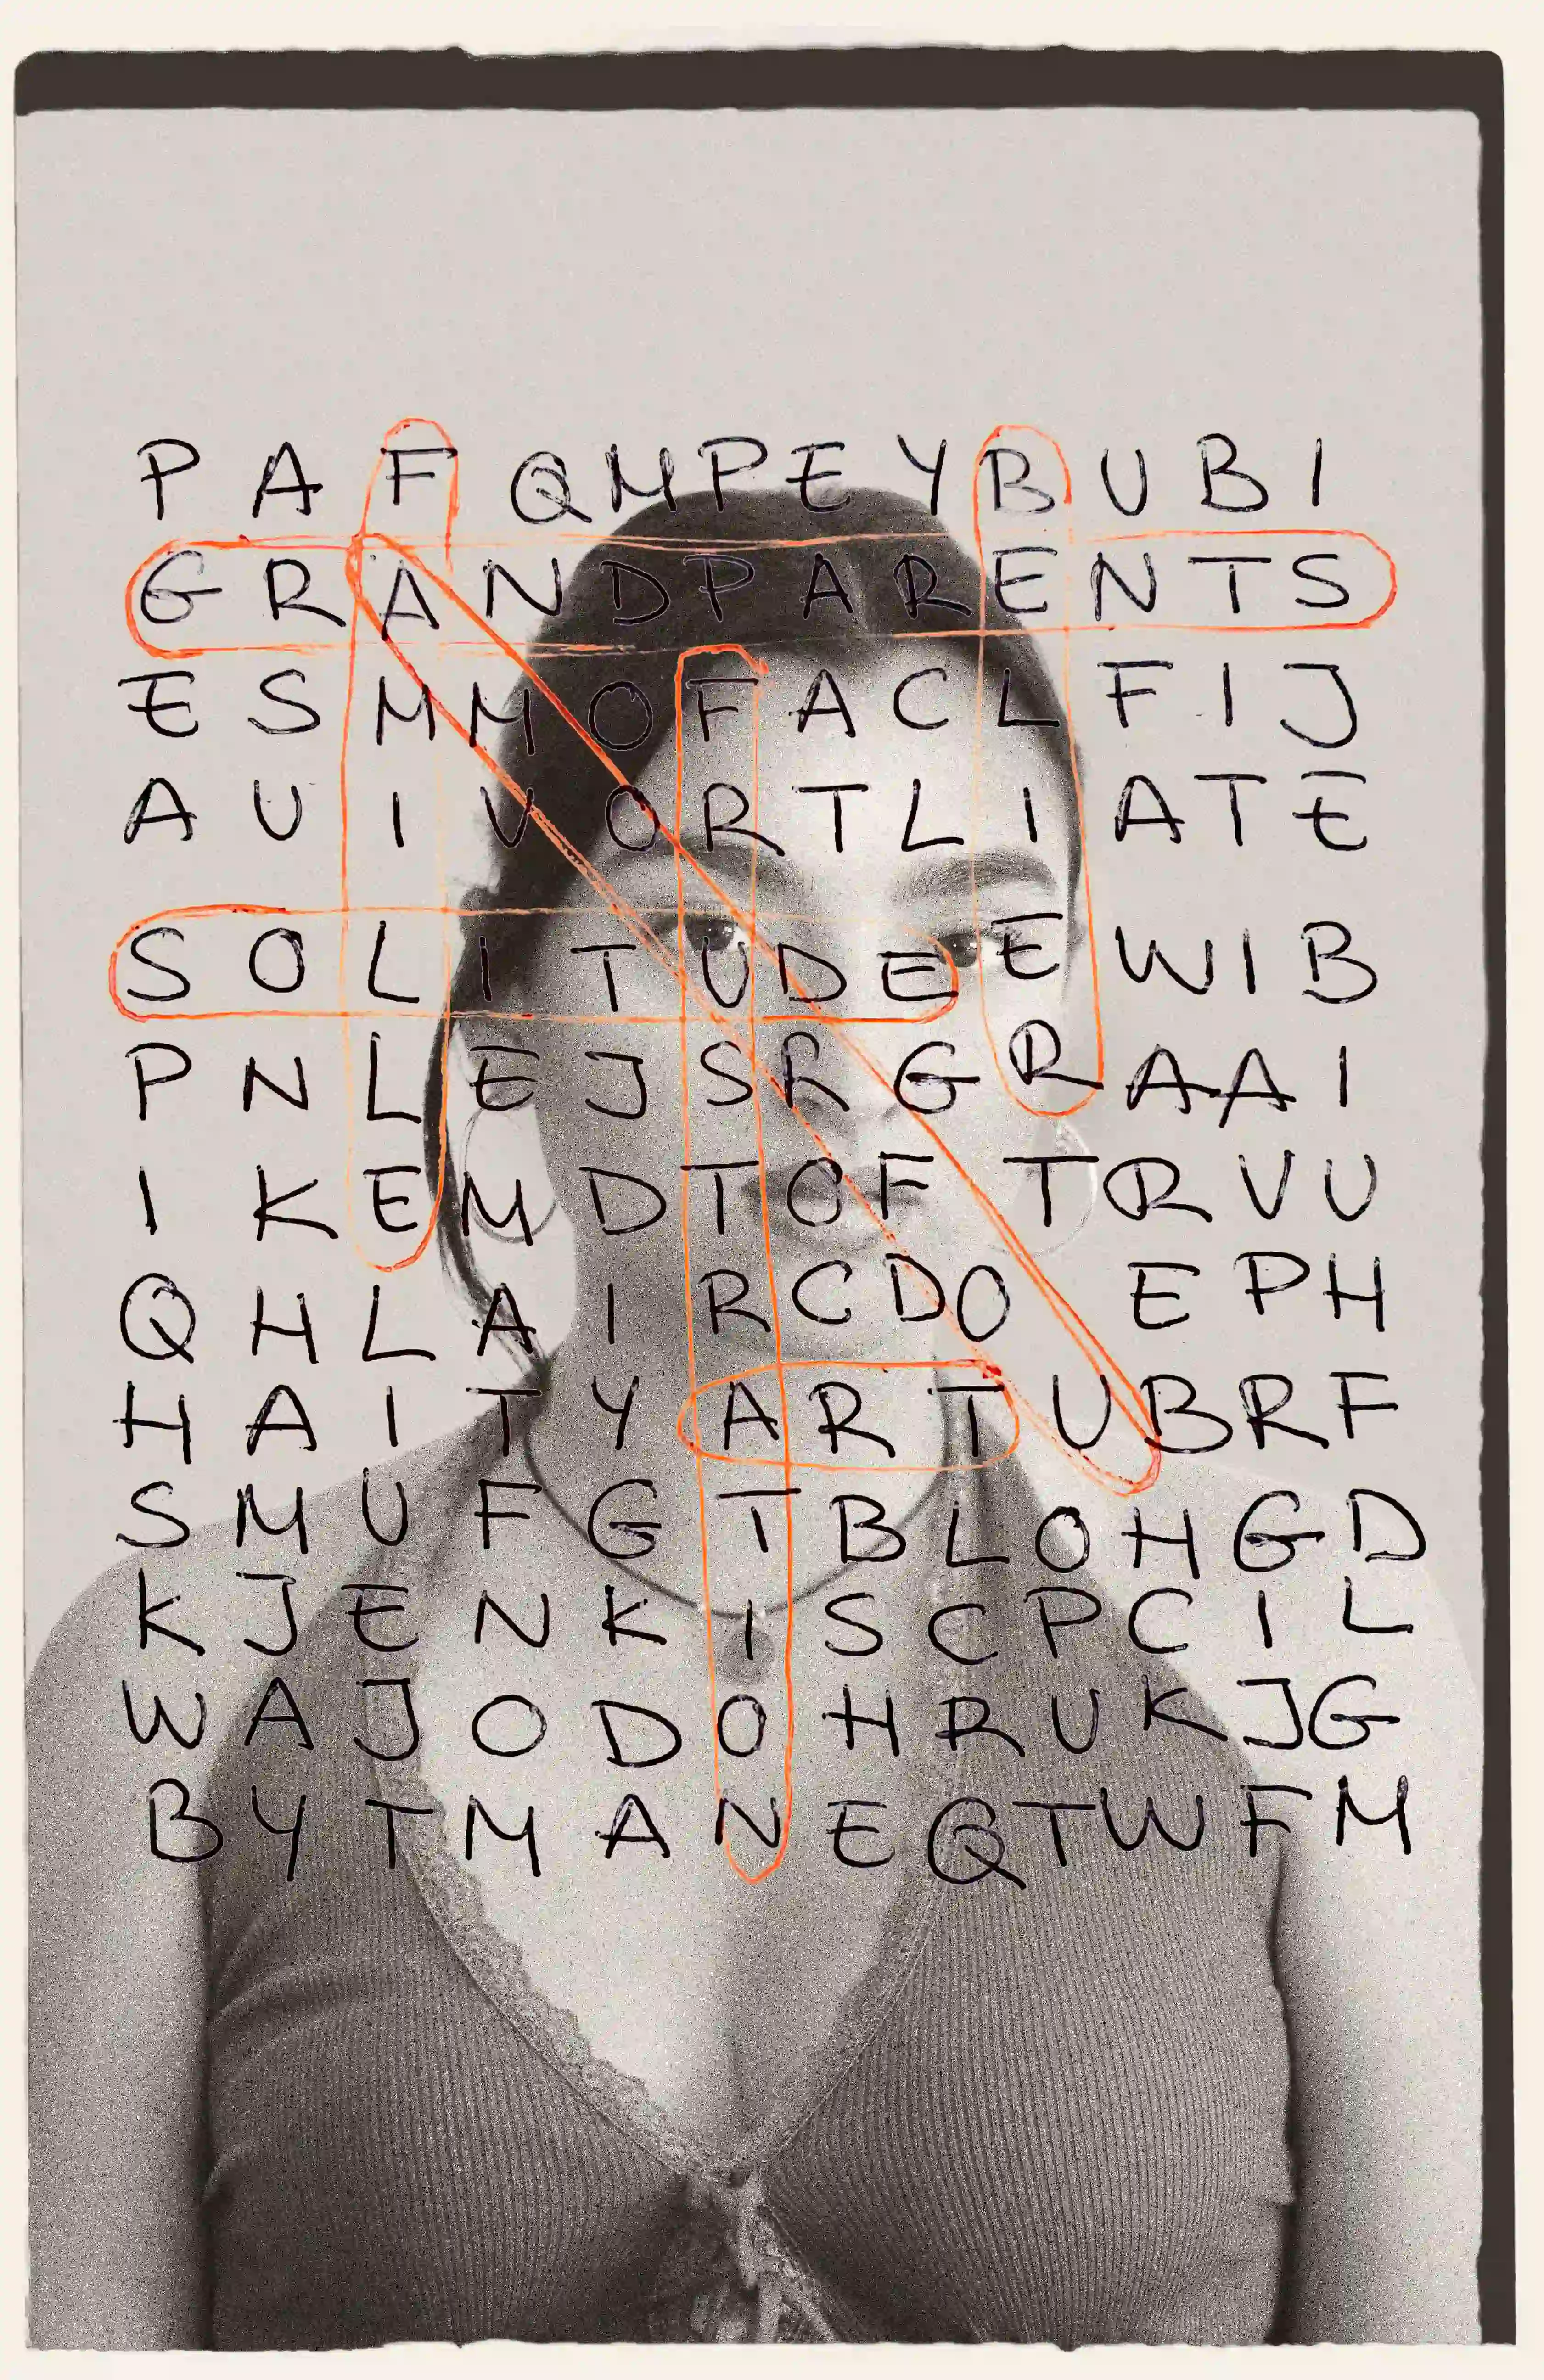 P A F Q M P E Y B U B I
G R A N D P A R E N T S
E S M M O F A C L F I J
A U I V O R T L I A T E
S O L I T U D E E W I B
P N L E J S R G R A A I
I K E M D T O F T R V U
Q H L A I R C D O E P H
H A I T Y A R T U B R F
S M U F G T B L O H G D
K J E N K I S C P C I L
W A J O D O H R U K J G
B Y T M A N E Q T W F M